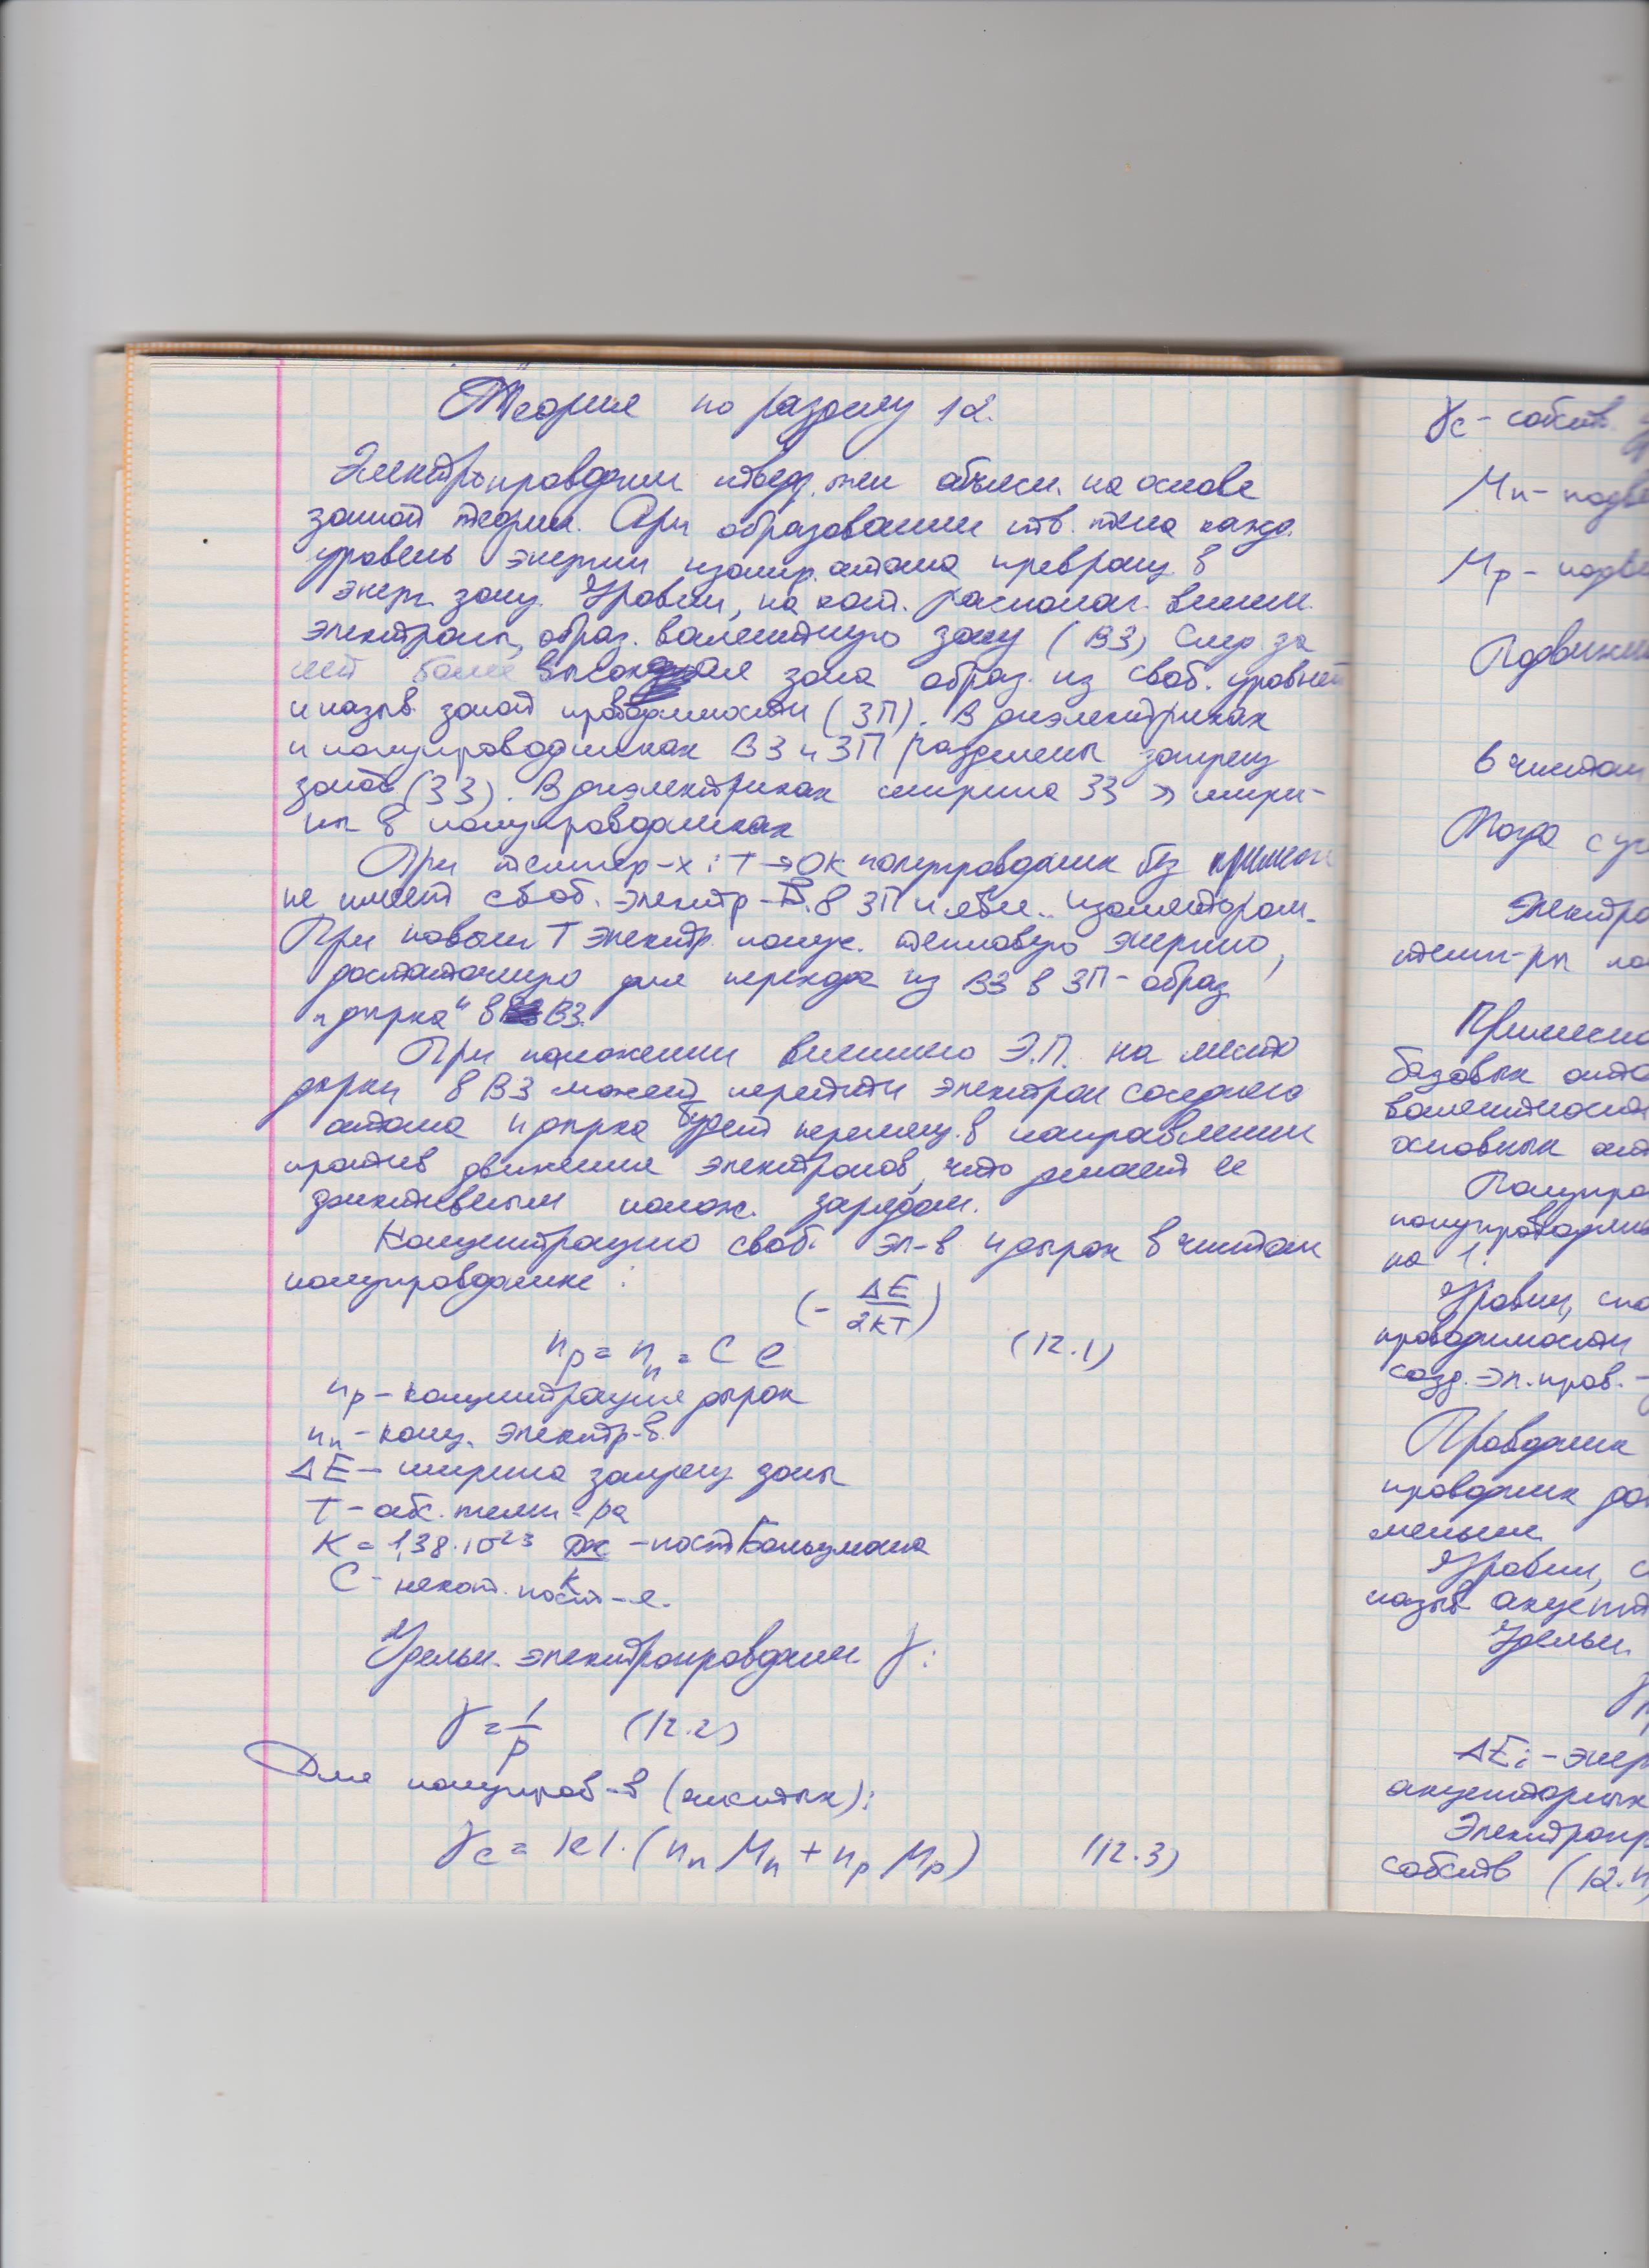 Теория по разделу 12.
Электропроводимн твед. тел объясн. на основе
зонной теории. При образовании тв. тела кажд.
уровень энергии изолир. атома превращ. в
энерг. зону. Уровни, на кот. располаг. внешн.
электроны, образ. валентную зону (ВЗ) След за
ней более высокая зона образ. из своб. уровней
и назыв. зоной проводимости (ЗП). В диэлектриках
и полупроводниках ВЗ и ЗП разделены запрещ
зоной (ЗЗ). В диэлектриках ширина ЗЗ >> шири-
ны в полупроводниках
При темпер-х: T→0К полупроводник без примеси
не имеет своб. электр-в. в ЗП и явл. изолятором.
При повыш T электр. получ. тепловую энергию,
достаточную для перехода из ВЗ в ЗП - образ
"дырка" в ВЗ.
При положении внешнего Э.П. на место
дырки в ВЗ может перейти электрон соседнего
атома и дырка будет перемещ. в направлении
против движения электронов, что делает ее
фиктивным полож. зарядом.
Концентрацию своб. эл-в и дырок в чистом
полупроводнике:
(- ΔE/2kT)
np = nn = C e (12.1)
np - концентрация дырок
nn - конц. электр-в.
ΔE - ширина запрещ зоны
T - абс. темп-ра
K = 1,38·10^-23 Дж/К - пост Больцмана
C - некот. пост-я.
Удельн. электропроводимн γ:
γ = 1/ρ (12.2)
Для полупров-в (чистых):
γc = |e|·(nn Mn + np Mp) (12.3)
γc - собств.
Mn - подв
Mp - подв
Подвижн
В чистом
Тогда су
Электро
темп-ры по
Примесн
базовых ато
валентност
основных ат
Полупро
полупроводник
на 1.
Уровни, сп
проводимости
созд. эл. пров. -
Проводник
проводник до
меньше
Уровни, с
назыв акцепт
Удельн.
γ
ΔEi - энер
акцепторных
Электропр
собств (12.4)